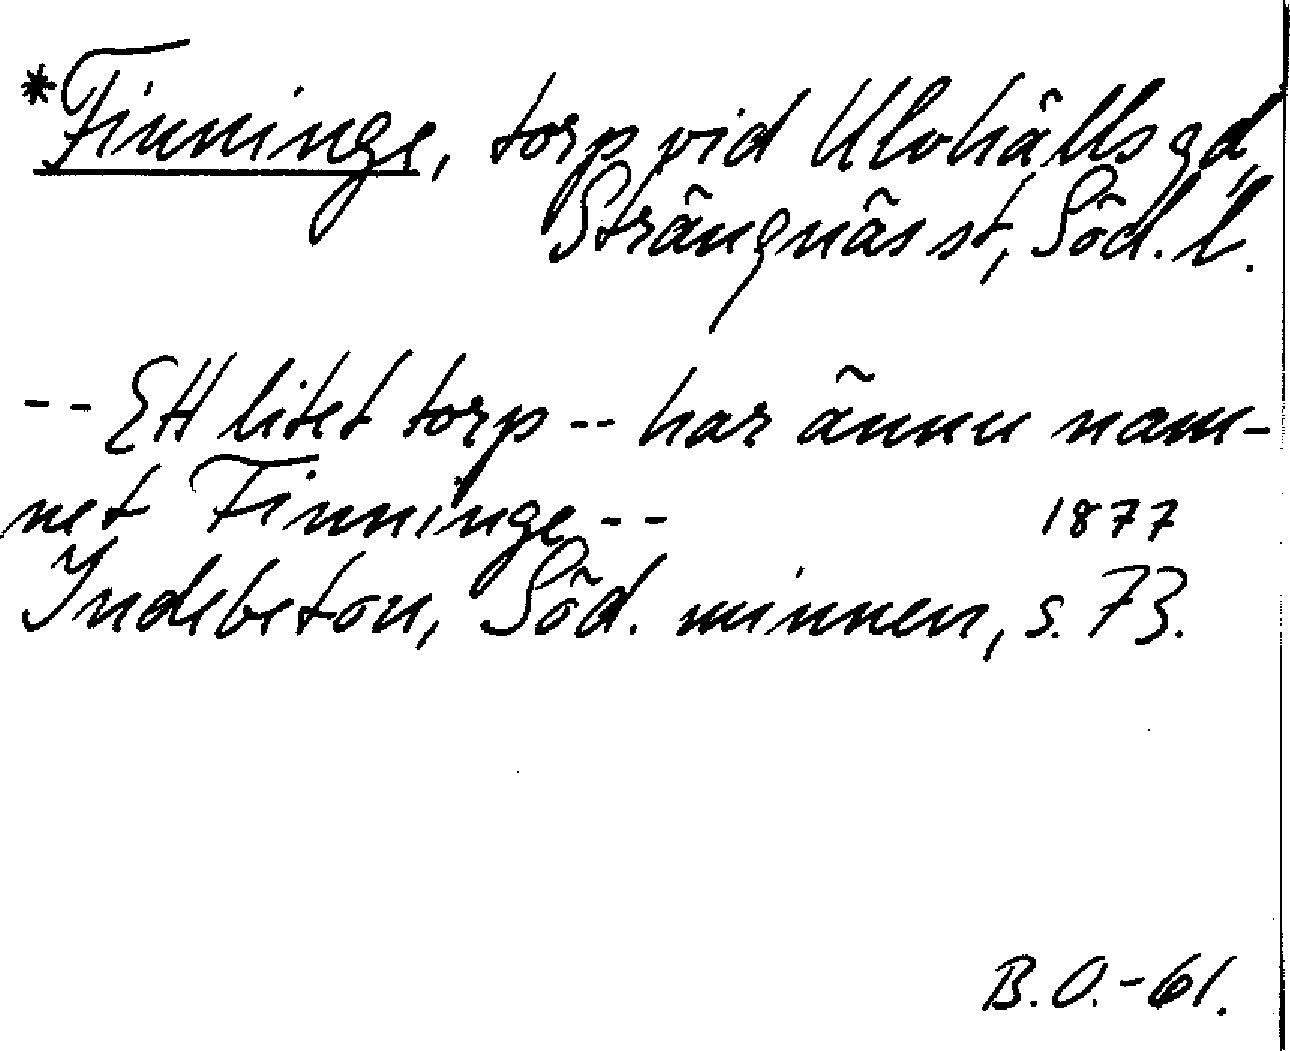 *Finninge, torp vid Ulvhälls gd,
Strängnäs st, Söd. l.
-- Ett litet torp -- har ännu nam-
net Finninge -- 1877
Indebetou, Söd. minnen, s. 73.
B.O.-61.